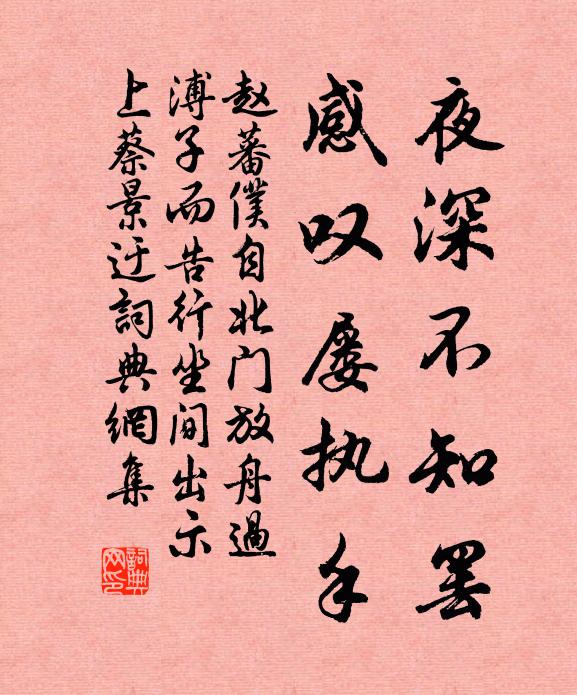 夜深不知罢
感叹屡执手
赵蕃僕自北门放舟過
溥子而告行坐间出示
上蔡景迂詞典網集
詞典网印